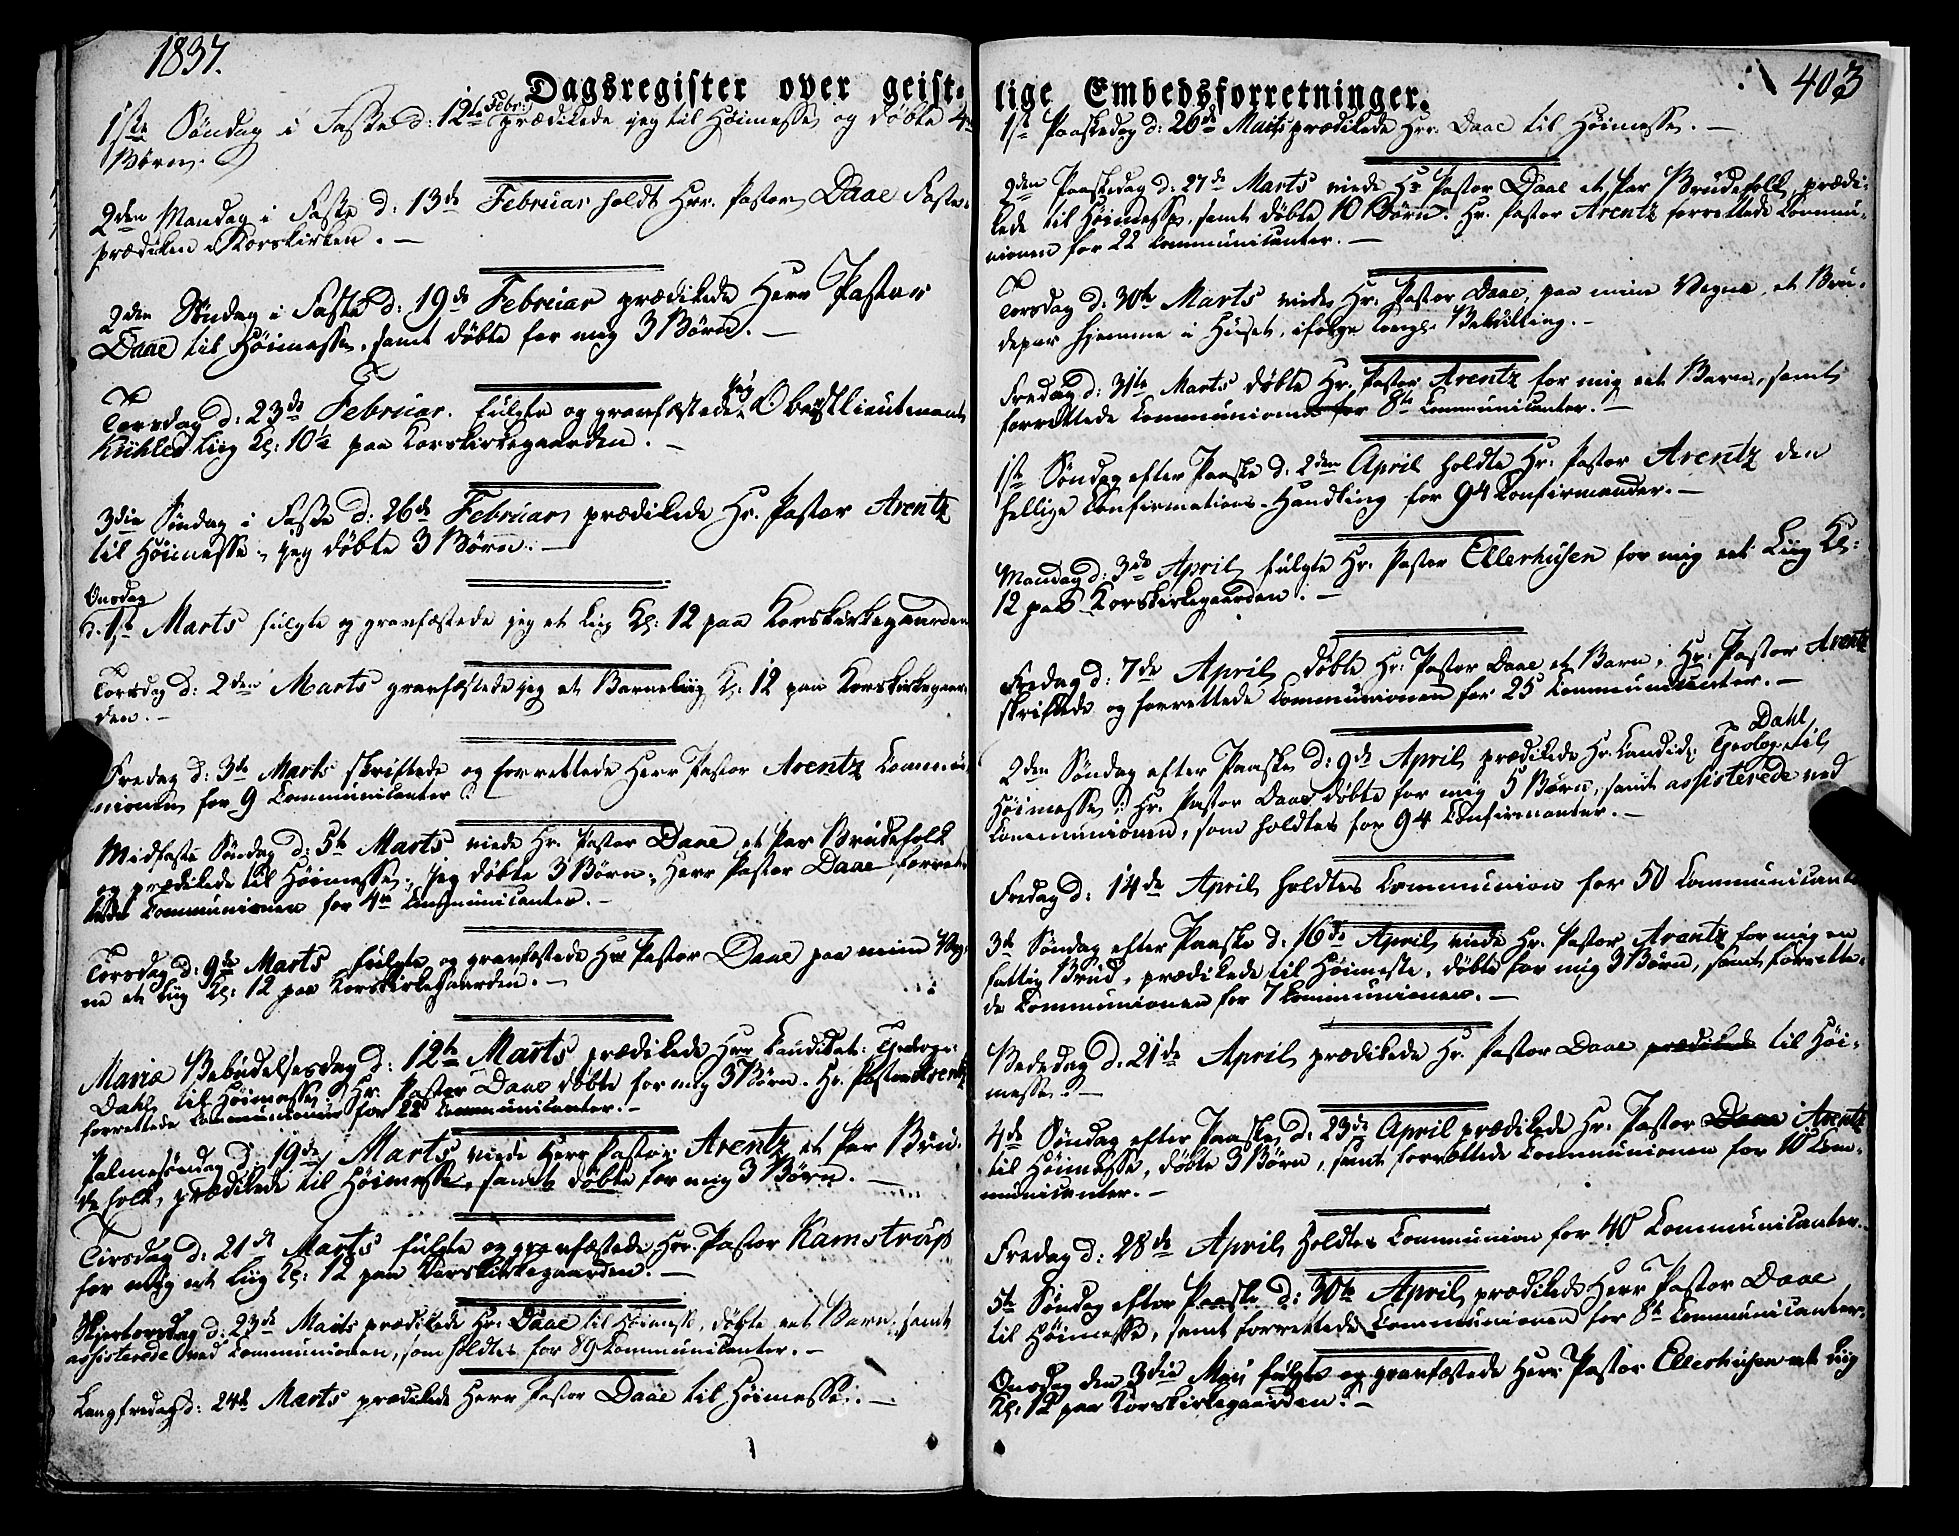 1837.
Dagsregister over geist-
1ste Søndag i Faste d: 12te Febr: prædikede jeg til Høimesse og døbte 4re
Børn.
2den Mandag i Faste d: 13de Februar holdt Hrr. Pastor Daae Faste-
prædiken i Korskirken. —
2den Søndag i Faste d: 19de Februar prædikede Herr Pastor
Daae til Høimesse, samt døbte for mig 3 Børn. —
Torsdag d: 23de Februar. fulgte og gravfæstede jeg Oberstlieutenant
Liig Kl: 10½ paa Korskirkegaarden. —
3die Søndag i Faste d: 26de Februar prædikede Hr. Pastor Arentz
til Høimesse, jeg døbte 3 Børn. —
Onsdag
d. 1ste Marts fulgte og gravfæstede jeg et Liig Kl: 12 paa Korskirkegaarden
Torsdag d: 2den Marts gravfæstede jeg et Barneliig Kl: 12 paa Korskirkegaar-
den. —
Fredag d: 3die Marts skriftede og forrettede Herr Pastor Arentz Commu-
nionen for 9 Communicanter. —
Midfaste Søndag d: 5te Marts viede Hr. Pastor Daae et Par Brudefolk
og prædikede til Høimesse, jeg døbte 3 Børn, Herr Pastor Daae forret-
tede Communionen for 4re Communicanter. —
Torsdag d: 9de Marts fulgte og gravfæstede Hr. Pastor Daae paa mine Veg-
ne et Liig Kl: 12 paa Korskirkegaarden. —
Mariæ Bebudelsesdag d: 12te Marts prædikede Hrr Candidat: Theologi:
Dahl til Høimesse. Hr. Pastor Daae døbte for mig 3 Børn. Hr. Pastor Arentz
forrettede Communionen for 22 Communicanter. —
Palmesøndag d. 19de Marts viede Herr Pastor Arentz et Par Bru-
defolk, prædikede til Høimesse, samt døbte for mig 3 Børn. —
Tirsdag d: 21de Marts fulgte og gravfæstede Hr. Pastor Kamstrup
for mig eet Liig Kl: 12 paa Korskirkegaarden. —
Skjertorsdag d: 23de Marts prædikede Hr. Daae til Høimesse, døbte eet Barn, samt
assisterede ved Communionen, som holdtes for 89 Communicanter. —
Langfredag d: 24de Marts prædikede Herr Pastor Daae til Høimesse. —
403
lige Embedsforretninger.
1ste Paaskedag d: 26de Marts prædikede Hrr. Daae til Høimesse. —
2den Paaskedag d: 27de Marts viede Hr Pastor Daae et Par Brudefolk, prædi-
kede til Høimesse, samt døbte 10 Børn. Hr. Pastor Arentz forrettede Commu-
nionen for 22 Communicanter. —
Torsdag d: 30te Marts viede Hr. Pastor Daae, paa mine Vegne, et Bru-
depar hjemme i Huset, ifølge Kongl: Bevilling. —
Fredag d: 31te Marts døbte Hr. Pastor Arentz for mig eet Barn, samt
forrettede Communionen for 8te Communicanter. —
1ste Søndag efter Paaske d: 2den April holdte Hr. Pastor Arentz den
hellige Confirmations-Handling for 94 Confirmander. —
Mandag d: 3die April fulgte Hr. Pastor Ellerhusen for mig eet Liig Kl:
12 paa Korskirkegaarden. —
Fredag d: 7de April døbte Hr. Pastor Daae et Barn, Hr. Pastor Arentz
skriftede og forrettede Communionen for 25 Communicanter. —
2den Søndag efter Paaske d: 9de April prædikede Hr. Candid: Theolog: Dahl til
Høimesse; Hr. Pastor Daae døbte for mig 5 Børn, samt assisterede ved
Communionen, som holdtes for 94 Confirmanter. —
Fredag d: 14de April holdtes Communion for 50 Communicanter
3de Søndag efter Paaske d. 16de April viede Hr. Pastor Arentz for mig en
fattig Brud, prædikede til Høimesse, døbte for mig 3 Børn, samt forrette-
de Communionen for 7 Communionen. —
Bededag d. 21de April prædikede Hr. Pastor Daae prædikede til Høi-
messe. —
4de Søndag efter Paaske d: 23de April prædikede Hr. Pastor Daae Arentz
til Høimesse, døbte 3 Børn, samt forrettede Communionen for 10 Com-
municanter. —
Fredag d: 28de April holdtes Communion for 40 Communicanter.
5te Søndag efter Paaske d: 30te April prædikede Herr Pastor Daae
til Høimesse, samt forrettede Communionen for 8te Communicanter.
Onsdag den 3die Mai fulgte og gravfæstede Herr Pastor Ellerhusen et Liig
Kl: 12 paa Korskirkegaarden. —